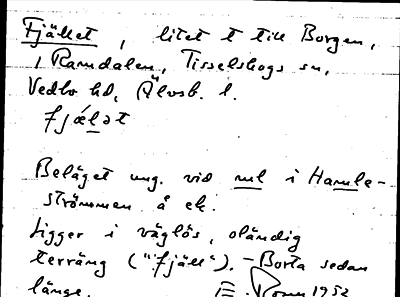 Fjället, litet t till Borgen,
i Ramdalen, Tisselskogs sn,
Vedbo hd, Älvsb. l.
fjælət
Beläget ung. vid ml i Hamle-
strömmen å ek.
Ligger i väglös, oländig
terräng ("fjäll"). – Borta sedan
länge. 1952